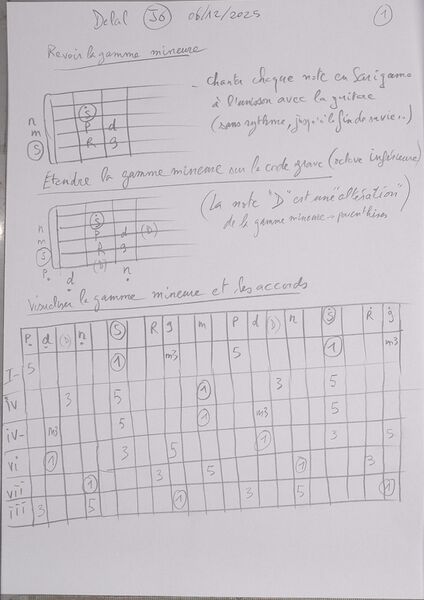 Delal J6 06/12/2025 1
Revoir la gamme mineure
- chanter chaque note en Sarigama
à l'unisson avec la guitare
(sans rythme, jusqu'à la fin de sa vie..)
Ṡ
n P d
m R g
S
Etendre la gamme mineure sur la corde grave (octave inférieure)
(La note "D" est une "altération"
de la gamme mineure → parenthèses
Ṡ
n P d (D)
m R g
S (D)
P d n
Visualiser la gamme mineure et les accords
P d (D) n S R g m P d (D) n Ṡ Ṙ ġ
I- 5 1 m3 5 1 m3
iv 3 5 1 3 5
iv- m3 5 1 m3 5
vi 1 3 5 1 3 5
vii 1 3 5 1 3
iii 3 5 1 3 5 1